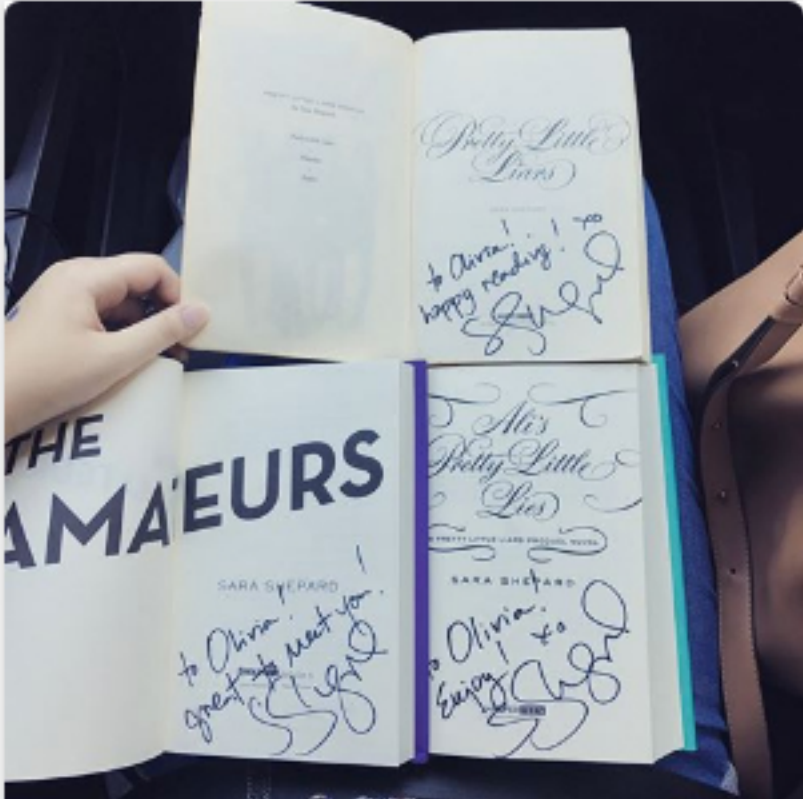 Pretty Little
Liars
SARA SHEPARD
to Olivia!
happy reading! xo
THE
AMATEURS
SARA SHEPARD
to Olivia!
great to meet you!
Ali's
Pretty Little
Lies
A PRETTY LITTLE LIARS PREQUEL NOVEL
SARA SHEPARD
to Olivia.
Enjoy! xo